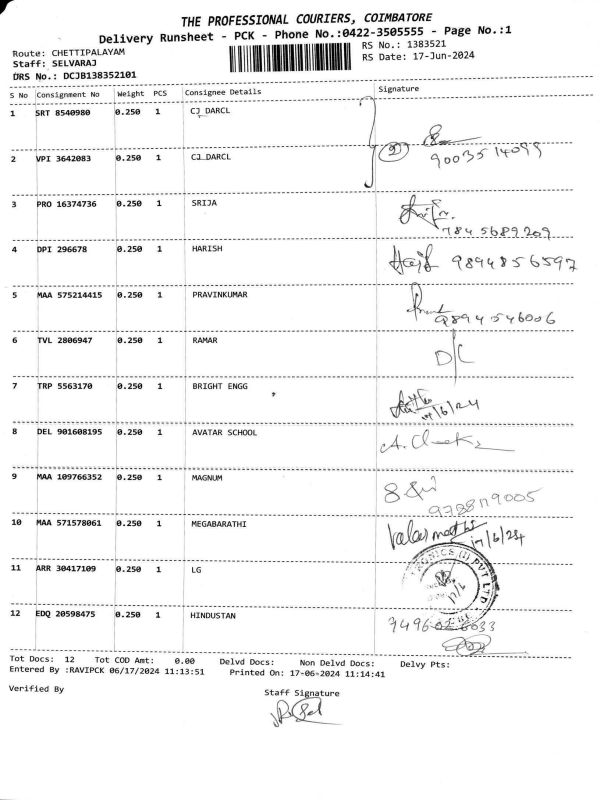 THE PROFESSIONAL COURIERS, COIMBATORE
Delivery Runsheet - PCK - Phone No.:0422-3505555 - Page No.:1
Route: CHETTIPALAYAM
RS No.: 1383521
Staff: SELVARAJ
RS Date: 17-Jun-2024
DRS No.: DCJB138352101
S No Consignment No Weight PCS Consignee Details Signature
1 SRT 8540980 0.250 1 CJ DARCL
2 VPI 3642083 0.250 1 CJ DARCL 2 9003514099
3 PRO 16374736 0.250 1 SRIJA
7845689209
4 DPI 296678 0.250 1 HARISH 9894856597
5 MAA 575214415 0.250 1 PRAVINKUMAR
9894546006
6 TVL 2806947 0.250 1 RAMAR
D/C
7 TRP 5563170 0.250 1 BRIGHT ENGG
17/6/24
8 DEL 901608195 0.250 1 AVATAR SCHOOL
9 MAA 109766352 0.250 1 MAGNUM
9788119005
10 MAA 571578061 0.250 1 MEGABARATHI
Valarmathi 17/6/24
11 ARR 30417109 0.250 1 LG
TRONICS (I) PVT LTD
17/6
12 EDQ 20598475 0.250 1 HINDUSTAN
Tot Docs: 12 Tot COD Amt: 0.00 Delvd Docs: Non Delvd Docs: Delvy Pts:
Entered By :RAVIPCK 06/17/2024 11:13:51 Printed On: 17-06-2024 11:14:41
Verified By Staff Signature